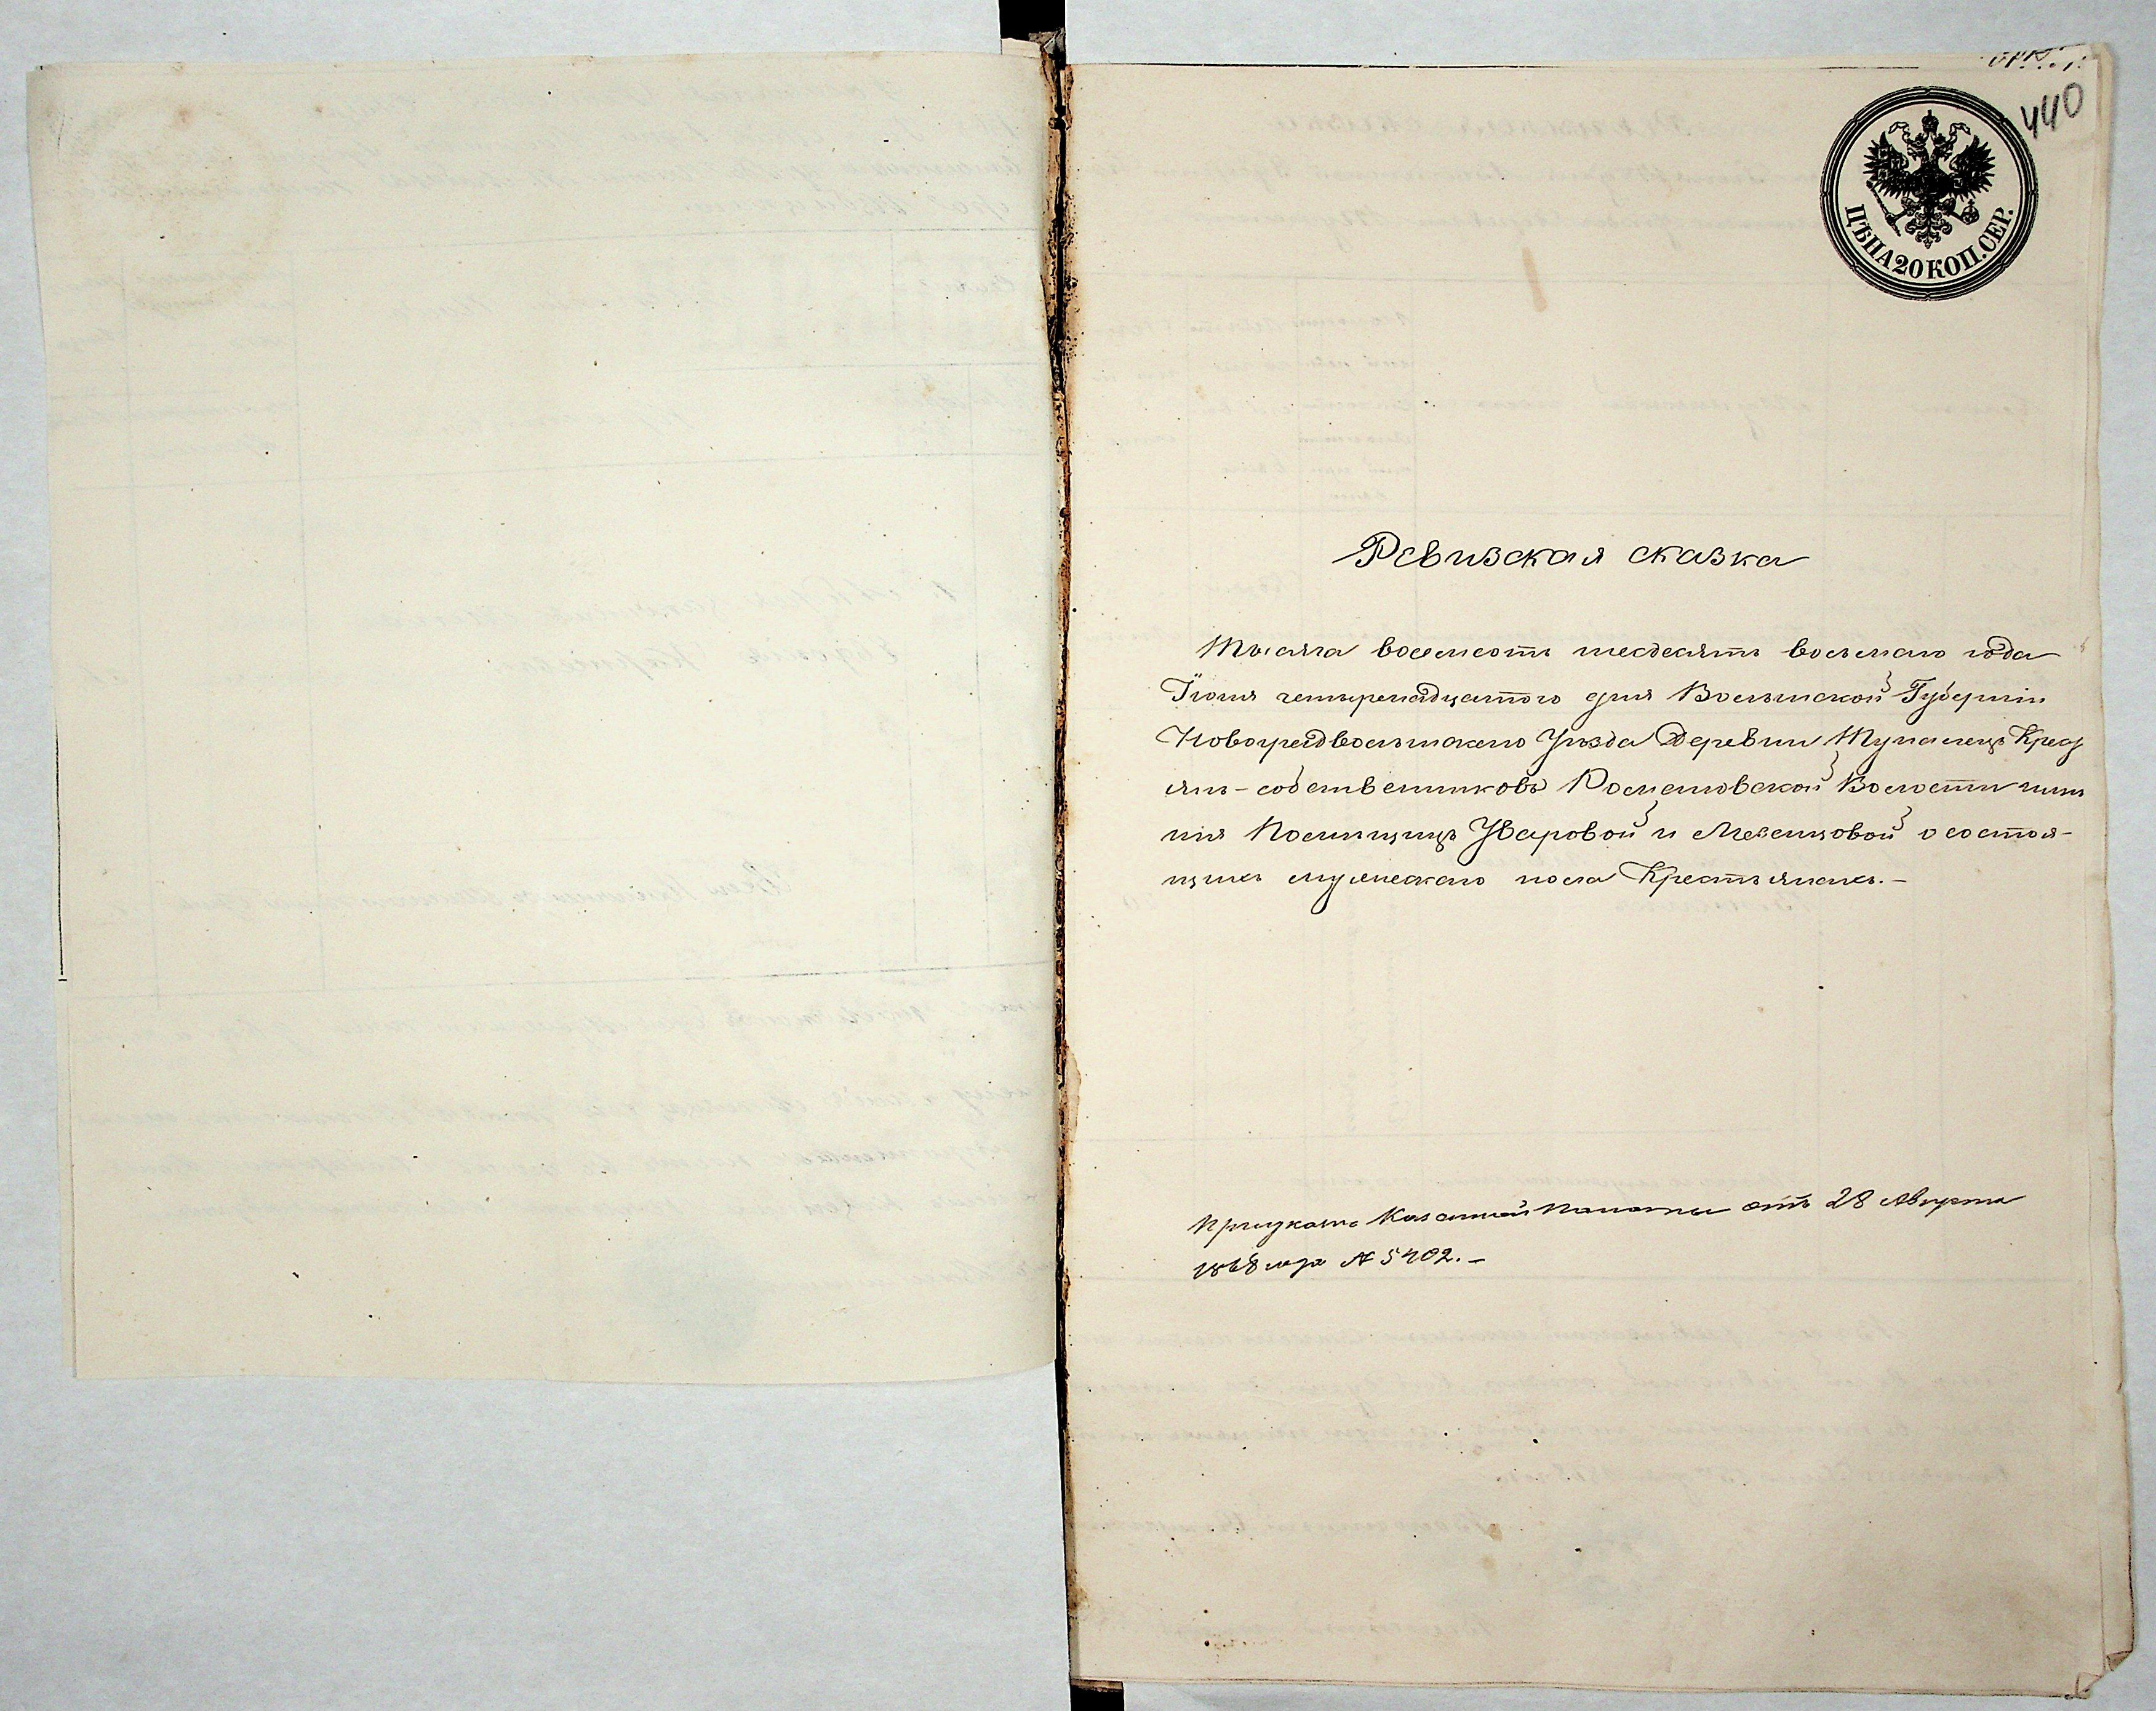 440
ЦѢНА 20 КОП. СЕР.
Ревизская сказка
Тысяча восемсотъ шесдесятъ восьмаго года
Іюня четыренадцатого дня Волынской Губерніи
Новоградволынскаго Уѣзда Деревни Тупалецъ Крес
янъ-собственниковъ Романовской Волости имѣ
нія Помѣщицъ Уваровой и Мезенцовой о состоя-
щихъ мужескаго пола Крестьянахъ.-
При указѣ Казенной Палаты отъ 28 Августа
1868 года № 5402.-